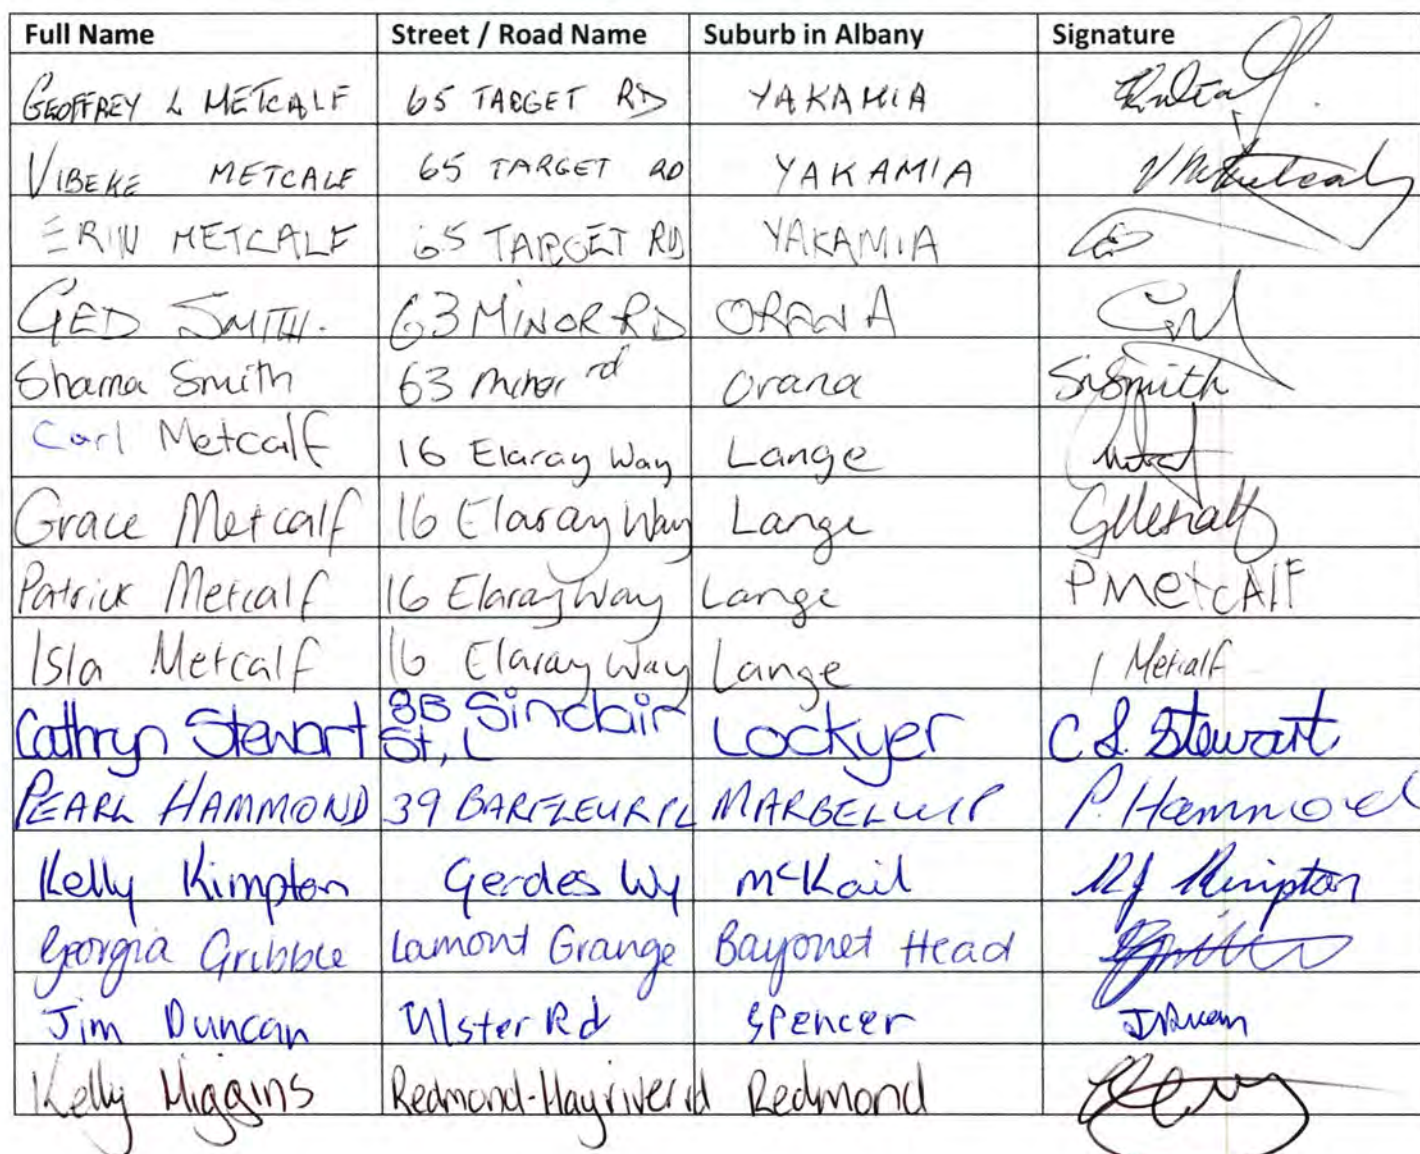 Full Name Street / Road Name Suburb in Albany Signature
GEOFFREY L METCALF 65 TARGET RD YAKAMIA
VIBEKE METCALF 65 TARGET RD YAKAMIA
ERIN METCALF 65 TARGET RD YAKAMIA
GED SMITH. 63 MINOR RD ORANA
Shama Smith 63 minor rd Orana SmSmith
Carl Metcalf 16 Elaray Way Lange
Grace Metcalf 16 Elaray Way Lange GMetcalf
Patrick Metcalf 16 Elaray Way Lange PMetcAlF
Isla Metcalf 16 Elaray Way Lange I Metcalf
Cathryn Stewart 8B Sinclair St, L Lockyer C L. Stewart
PEARL HAMMOND 39 BARFLEUR PL MARBELUP P. Hammond
Kelly Kimpton Gerdes Wy McKail KJ Kimpton
Georgia Gribble Lamont Grange Bayonet Head
Jim Duncan Ulster Rd Spencer JDuncan
Kelly Higgins Redmond-Hayriver rd Redmond